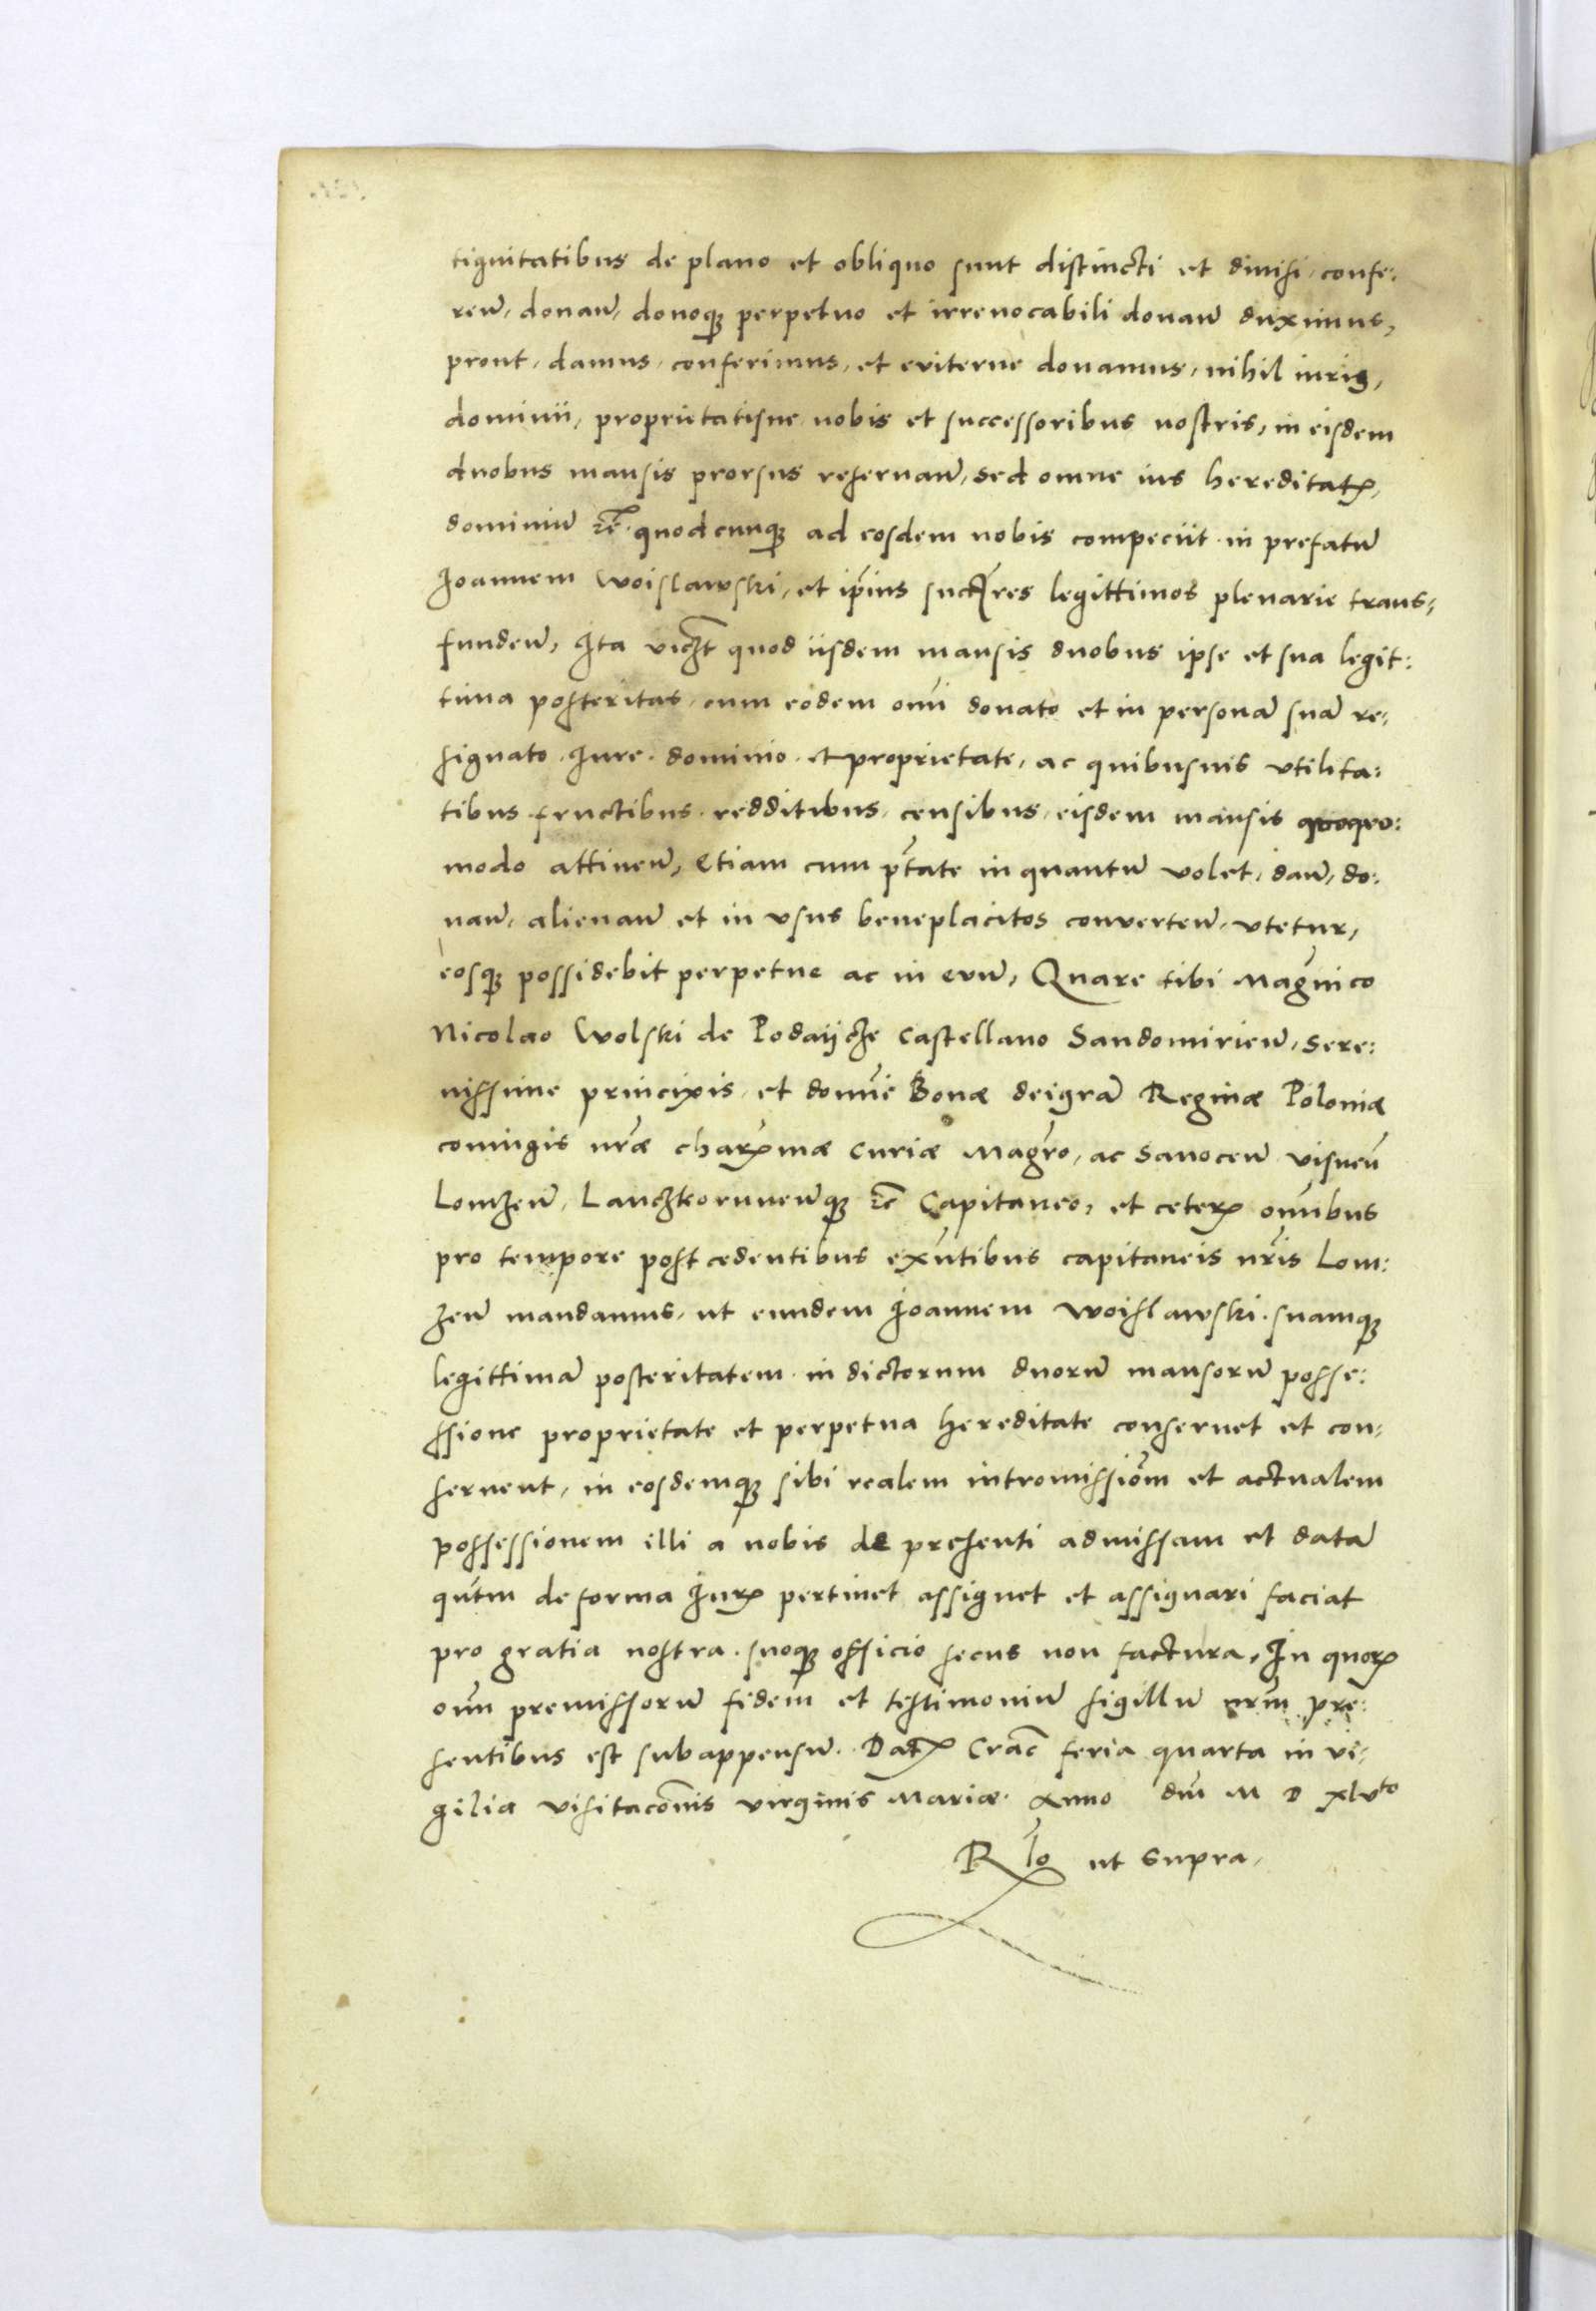 tignitatibus de plano et obliquo sunt distincti et diuisi, confe:
ren̄, donan̄, donoqȝ perpetuo et irreuocabili donan̄ duximus,
prout, damus, conferimus, et euiterne donamus, nihil iuris,
dominii, proprietatisue nobis et successoribus nostris, in eisdem
duobus mansis prorsus reseruan̄, sed omne ius hereditatꝭ,
dominiū ꝛc̄. quodcunqȝ ad eosdem nobis competiit in prefatū
Joannem Woislawski, et ip̄ius succ̄res legittimos plenarie trans,
funden̄, Ita vicȝt quod iisdem mansis duobus ipse et sua legit:
tima posteritas, cum eodem oīni donato et in personā suā re:
signato, Jure, dominio et proprietate, ac quibusuis vtilita:
tibus fructibus redditibus, censibus, eisdem mansis quoquo:
modo attinen̄, Etiam cum ptāte in quantū volet, dan̄, do:
nan̄, alienan̄ et in vsus beneplacitos conuerten̄, vtetur,
eosqȝ possidebit perpetue ac in euū, Quare tibi Magn̄ico
Nicolao Wolski de Podaijcȝe Castellano Sandomirien̄, Sere:
nissime principis, et domn̄e Bonæ dei gr̄a Reginæ Poloniæ
coniugis nr̄æ charꝭmæ Curiæ Magr̄o, ac Sanocen̄ visnen̄
Lomȝen̄, Lancȝkorunen̄qȝ ꝛc̄ Capitaneo, et ceterꝭ oīnibus
pro tempore post cedentibus exn̄tibus capitaneis nr̄is Lom:
ȝen̄ mandamus, ut eundem Joannem Woislawski, suamqȝ
legittimā posteritatem in dictorum duorū mansorū posse:
ssione proprietate et perpetua hereditate conseruet et con,
seruent, in eosdemqȝ sibi realem intromissiōm et actualem
possessionem illi a nobis de presenti admissam et datā
qūtm de forma Jurꝭ pertinet assignet et assignari faciat
pro gratia nostra, suoqȝ officio secus non factura, In quorꝝ
oīm premissorū fidem et testimoniū sigillū nr̄m pre:
sentibus est subappensū. Datꝭ Crac̄ feria quarta in vi,
gilia visitacōnis virginis Mariæ. Anno dn̄i M D xlvto
Rlo ut supra,